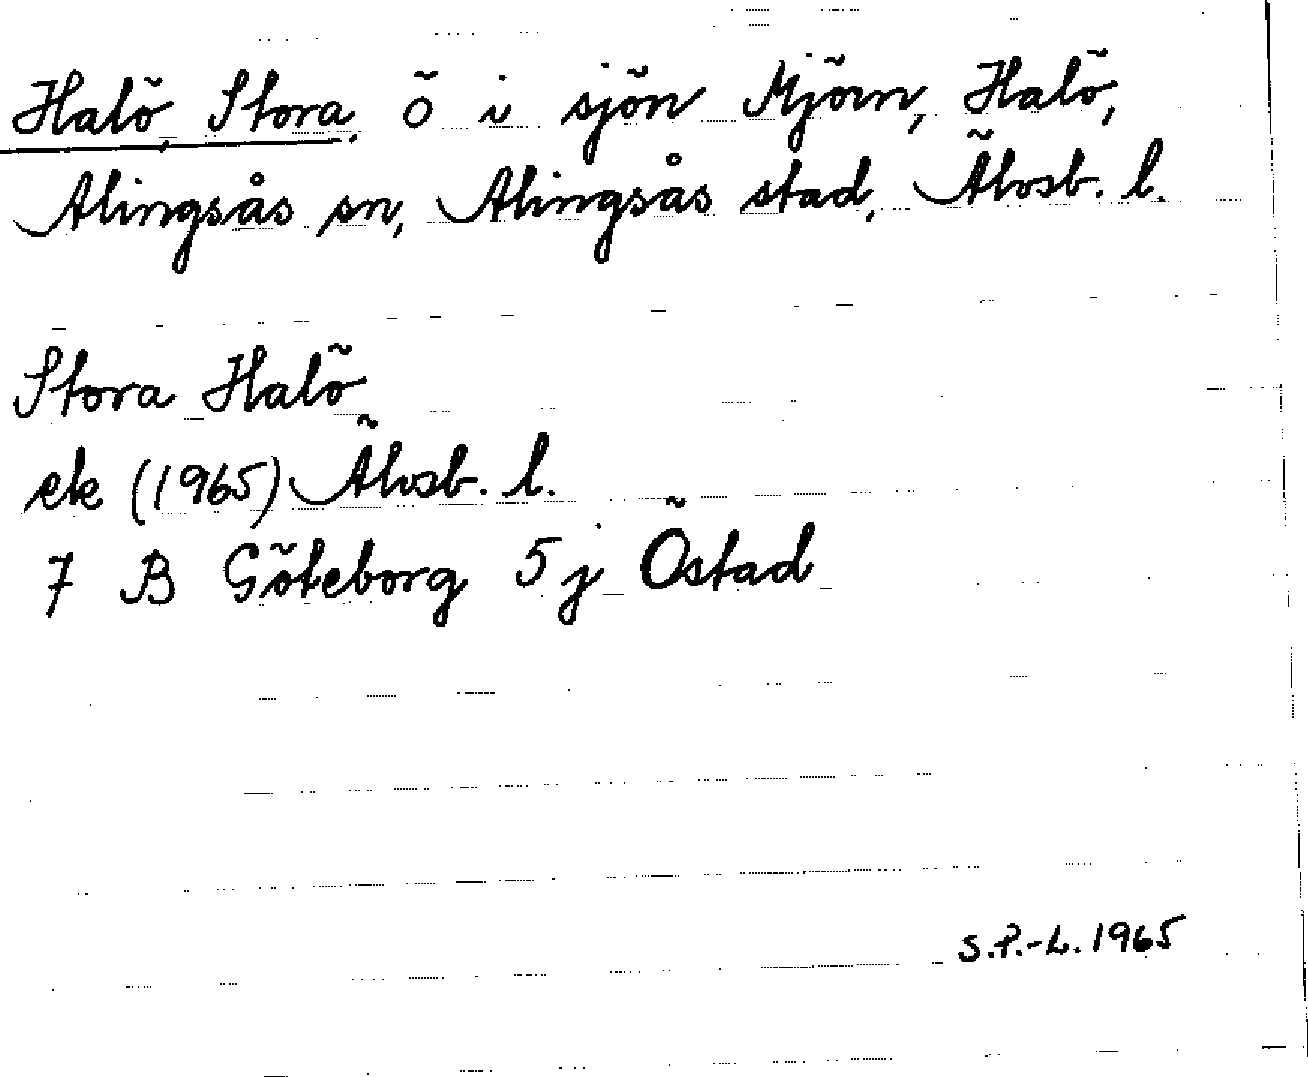 Halö, Stora, ö i sjön Mjörn, Halö,
Alingsås sn, Alingsås stad, Älvsb. l.
Stora Halö
ek (1965) Älvsb. l.
7 B Göteborg 5 j Östad
S.P.-L. 1965